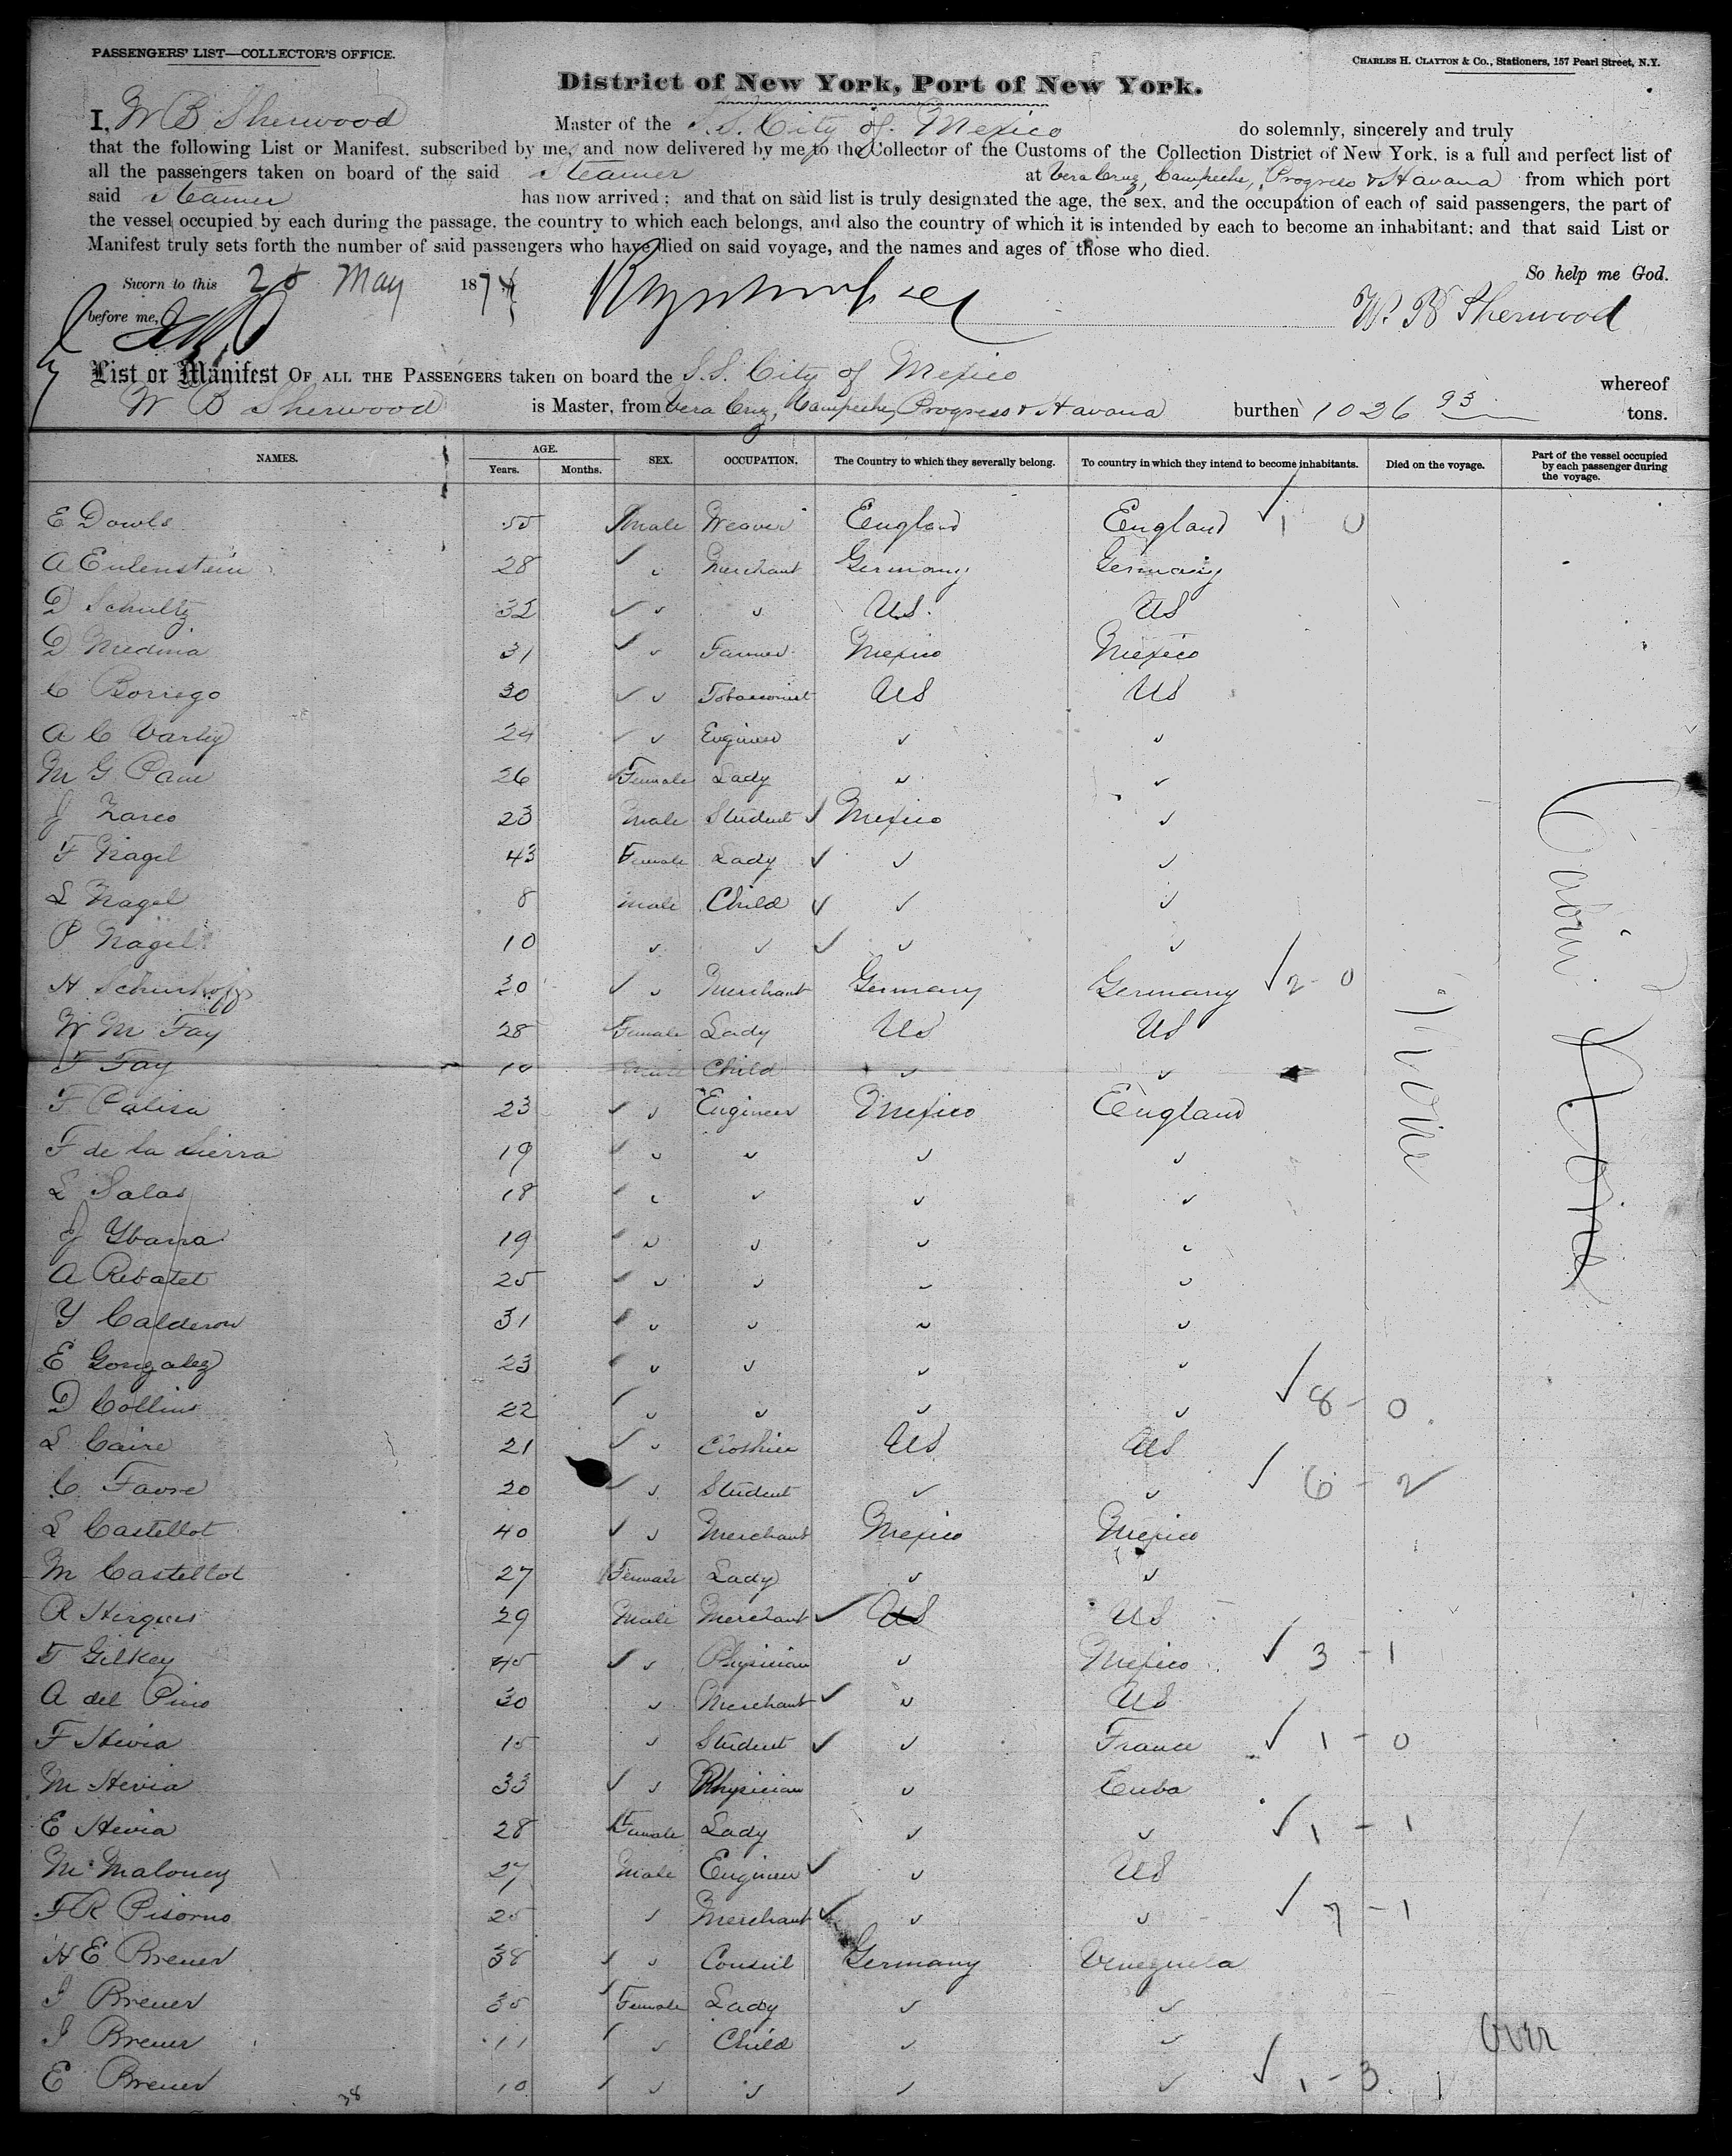 PASSENGERS' LIST—COLLECTOR'S OFFICE.
CHARLES H. CLAYTON & Co., Stationers, 157 Pearl Street, N.Y.
District of New York, Port of New York.
I, W B Sherwood Master of the S.S. City of Mexico do solemnly, sincerely and truly
that the following List or Manifest, subscribed by me, and now delivered by me to the Collector of the Customs of the Collection District of New York, is a full and perfect list of
all the passengers taken on board of the said Steamer at Vera Cruz, Campeche, Progreso & Havana from which port
said Steamer has now arrived; and that on said list is truly designated the age, the sex, and the occupation of each of said passengers, the part of
the vessel occupied by each during the passage, the country to which each belongs, and also the country of which it is intended by each to become an inhabitant; and that said List or
Manifest truly sets forth the number of said passengers who have died on said voyage, and the names and ages of those who died.
So help me God.
Sworn to this 28 May 1874
before me, W. B Sherwood
List or Manifest OF ALL THE PASSENGERS taken on board the S.S. City of Mexico whereof
W B Sherwood is Master, from Vera Cruz, Campeche, Progreso & Havana burthen 1026 93 tons.
NAMES. AGE. Years. Months. SEX. OCCUPATION. The Country to which they severally belong. To country in which they intend to become inhabitants. Died on the voyage. Part of the vessel occupied by each passenger during the voyage.
E Dowls 55 Male Weaver England England 1 0
A Eulenstein 28 Merchant Germany Germany
D Schultz 32 US. US
D Medina 31 Farmer Mexico Mexico
C Borrego 30 Tobacconist US US
A C Varley 24 Engineer
M G Pam 26 Female Lady
J Zarco 23 Male Student Mexico
F Nagel 43 Female Lady
L Nagel 8 Male Child
P Nagel 10
H Schurhoff 30 Merchant Germany Germany 2 0
W M Fay 28 Female Lady US US
F Fay 10 Male Child
F Calisa 23 Engineer Mexico England
F de la Sierra 19
L Salas 18
J Ybarra 19
A Rebatet 25
Y Calderon 31
E Gonzalez 23
D Collins 22 8 - 0
L Caire 21 US US
C Favre 20 Student 6 - 2
L Castellot 40 Merchant Mexico Mexico
M Castellot 27 Female Lady
R Hergues 29 Male Merchant US US
F Gilkey 45 Physician Mexico 3 - 1
A del Pino 30 Merchant US
F Hevia 15 Student France 1 - 0
M Hevia 33 Physician Cuba
E Hevia 28 Female Lady 1 - 1
M Maloney 27 Male Engineer US
F R Pisorno 25 Merchant 7 - 1
H E Breuer 38 Consul Germany Venezuela
I Breuer 35 Female Lady
I Breuer 11 Child
E Breuer 10 1 - 3
None
Cabin
Over
38